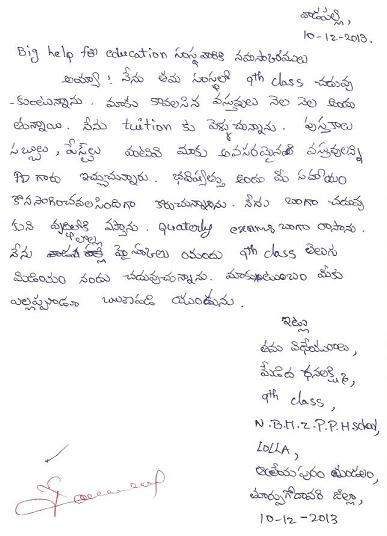 వాడపల్లి,
10-12-2013.
Big help for education సంస్థ వారికి నమస్కారములు
అయ్యా! నేను తమ సంస్థలో 9th class చదువు
-కుంటున్నాను. మాకు కావలసిన వస్తువులు నెల నెల అందు
తున్నాయి. నేను tuition కు వెళ్ళుచున్నాను. పుస్తకాలు
సబ్బులు, పేస్ట్‌లు మాకు అవసరమైనటి వస్తువులన్ని
గారు ఇచ్చుచున్నారు. భవిష్యత్తు అందు మీ సహాయం
కొనసాగించవలసిందిగా కోరుచున్నాను. నేను బాగా చదువు
కుని వృద్ధిలోకి వస్తాను. Quaterly exams బాగా రాసాను.
నేను లొల్ల హైస్కూలు యందు 9th class తెలుగు
మీడియం నందు చదువుచున్నాను. మాకుటుంబం మీకు
ఎల్లప్పుడూ ఋణపడి యుండును.
ఇట్లు
తమ విధేయురాలు,
ధనలక్ష్మి,
9th class,
N.B.M.Z.P.P.H School,
LOLLA,
ఆత్రేయపురం మండలం,
తూర్పుగోదావరి జిల్లా,
10-12-2013